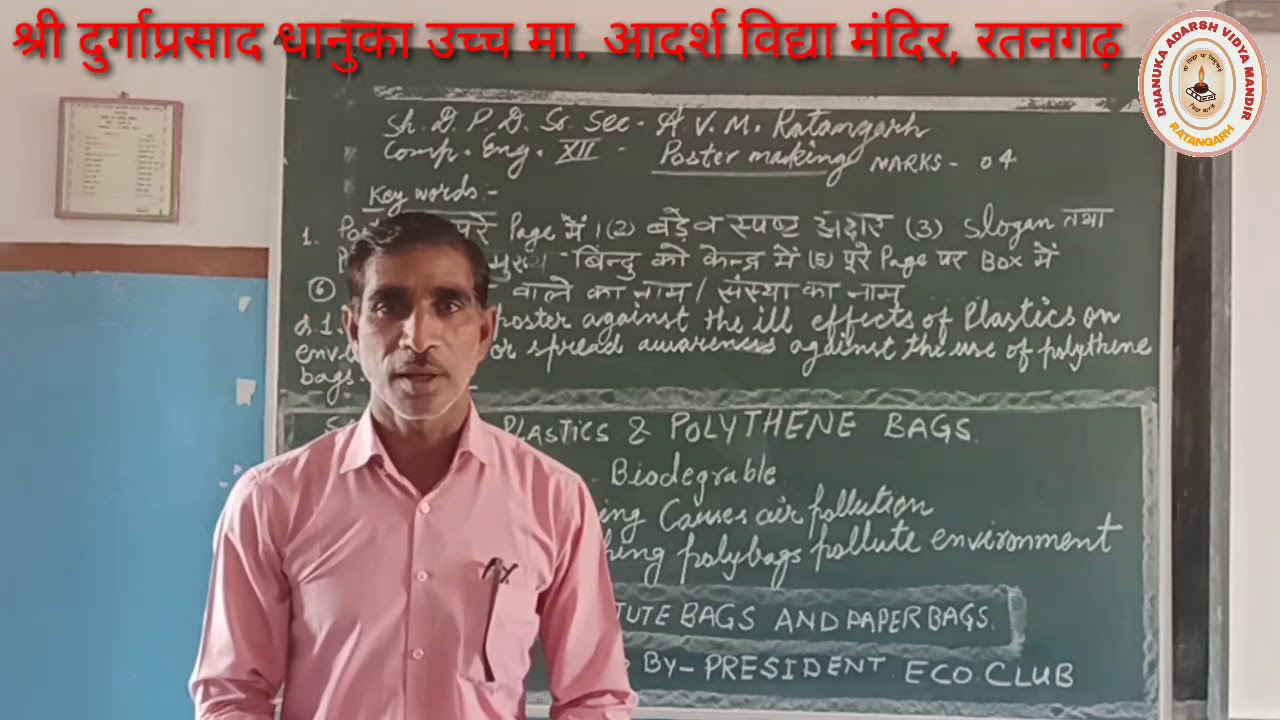 श्री दुर्गाप्रसाद धानुका उच्च मा. आदर्श विद्या मंदिर, रतनगढ़
DHANUKA ADARSH VIDYA MANDIR
RATANGARH
Sh. D. P. D. Sr. Sec. A. V. M. Ratangarh
Comp. Eng. XII - Poster making MARKS - 04
Key words:-
1. पूरे Page में । (2) बड़े व स्पष्ट अक्षर (3) Slogan तथा
मुख्य बिन्दु को केन्द्र में (5) पूरे Page पर Box में
(6) वाले का नाम / संस्था का नाम
Q.1. poster against the ill effects of Plastics on
or spread awareness against the use of polythene
bags.
PLASTICS & POLYTHENE BAGS.
Biodegrable
Causes air pollution
polybags pollute environment
BAGS AND PAPER BAGS.
BY - PRESIDENT ECO CLUB